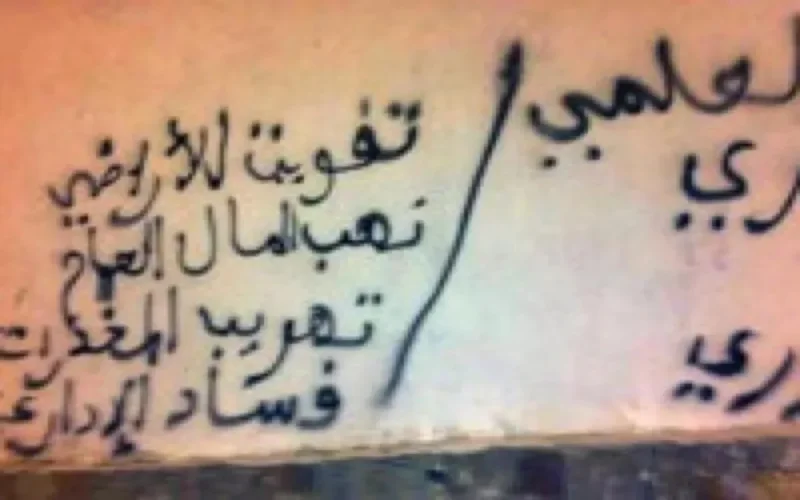 لعلمي
تفويت للأراضي
نهب المال العام
تهريب المخدرات
فساد الإدارة